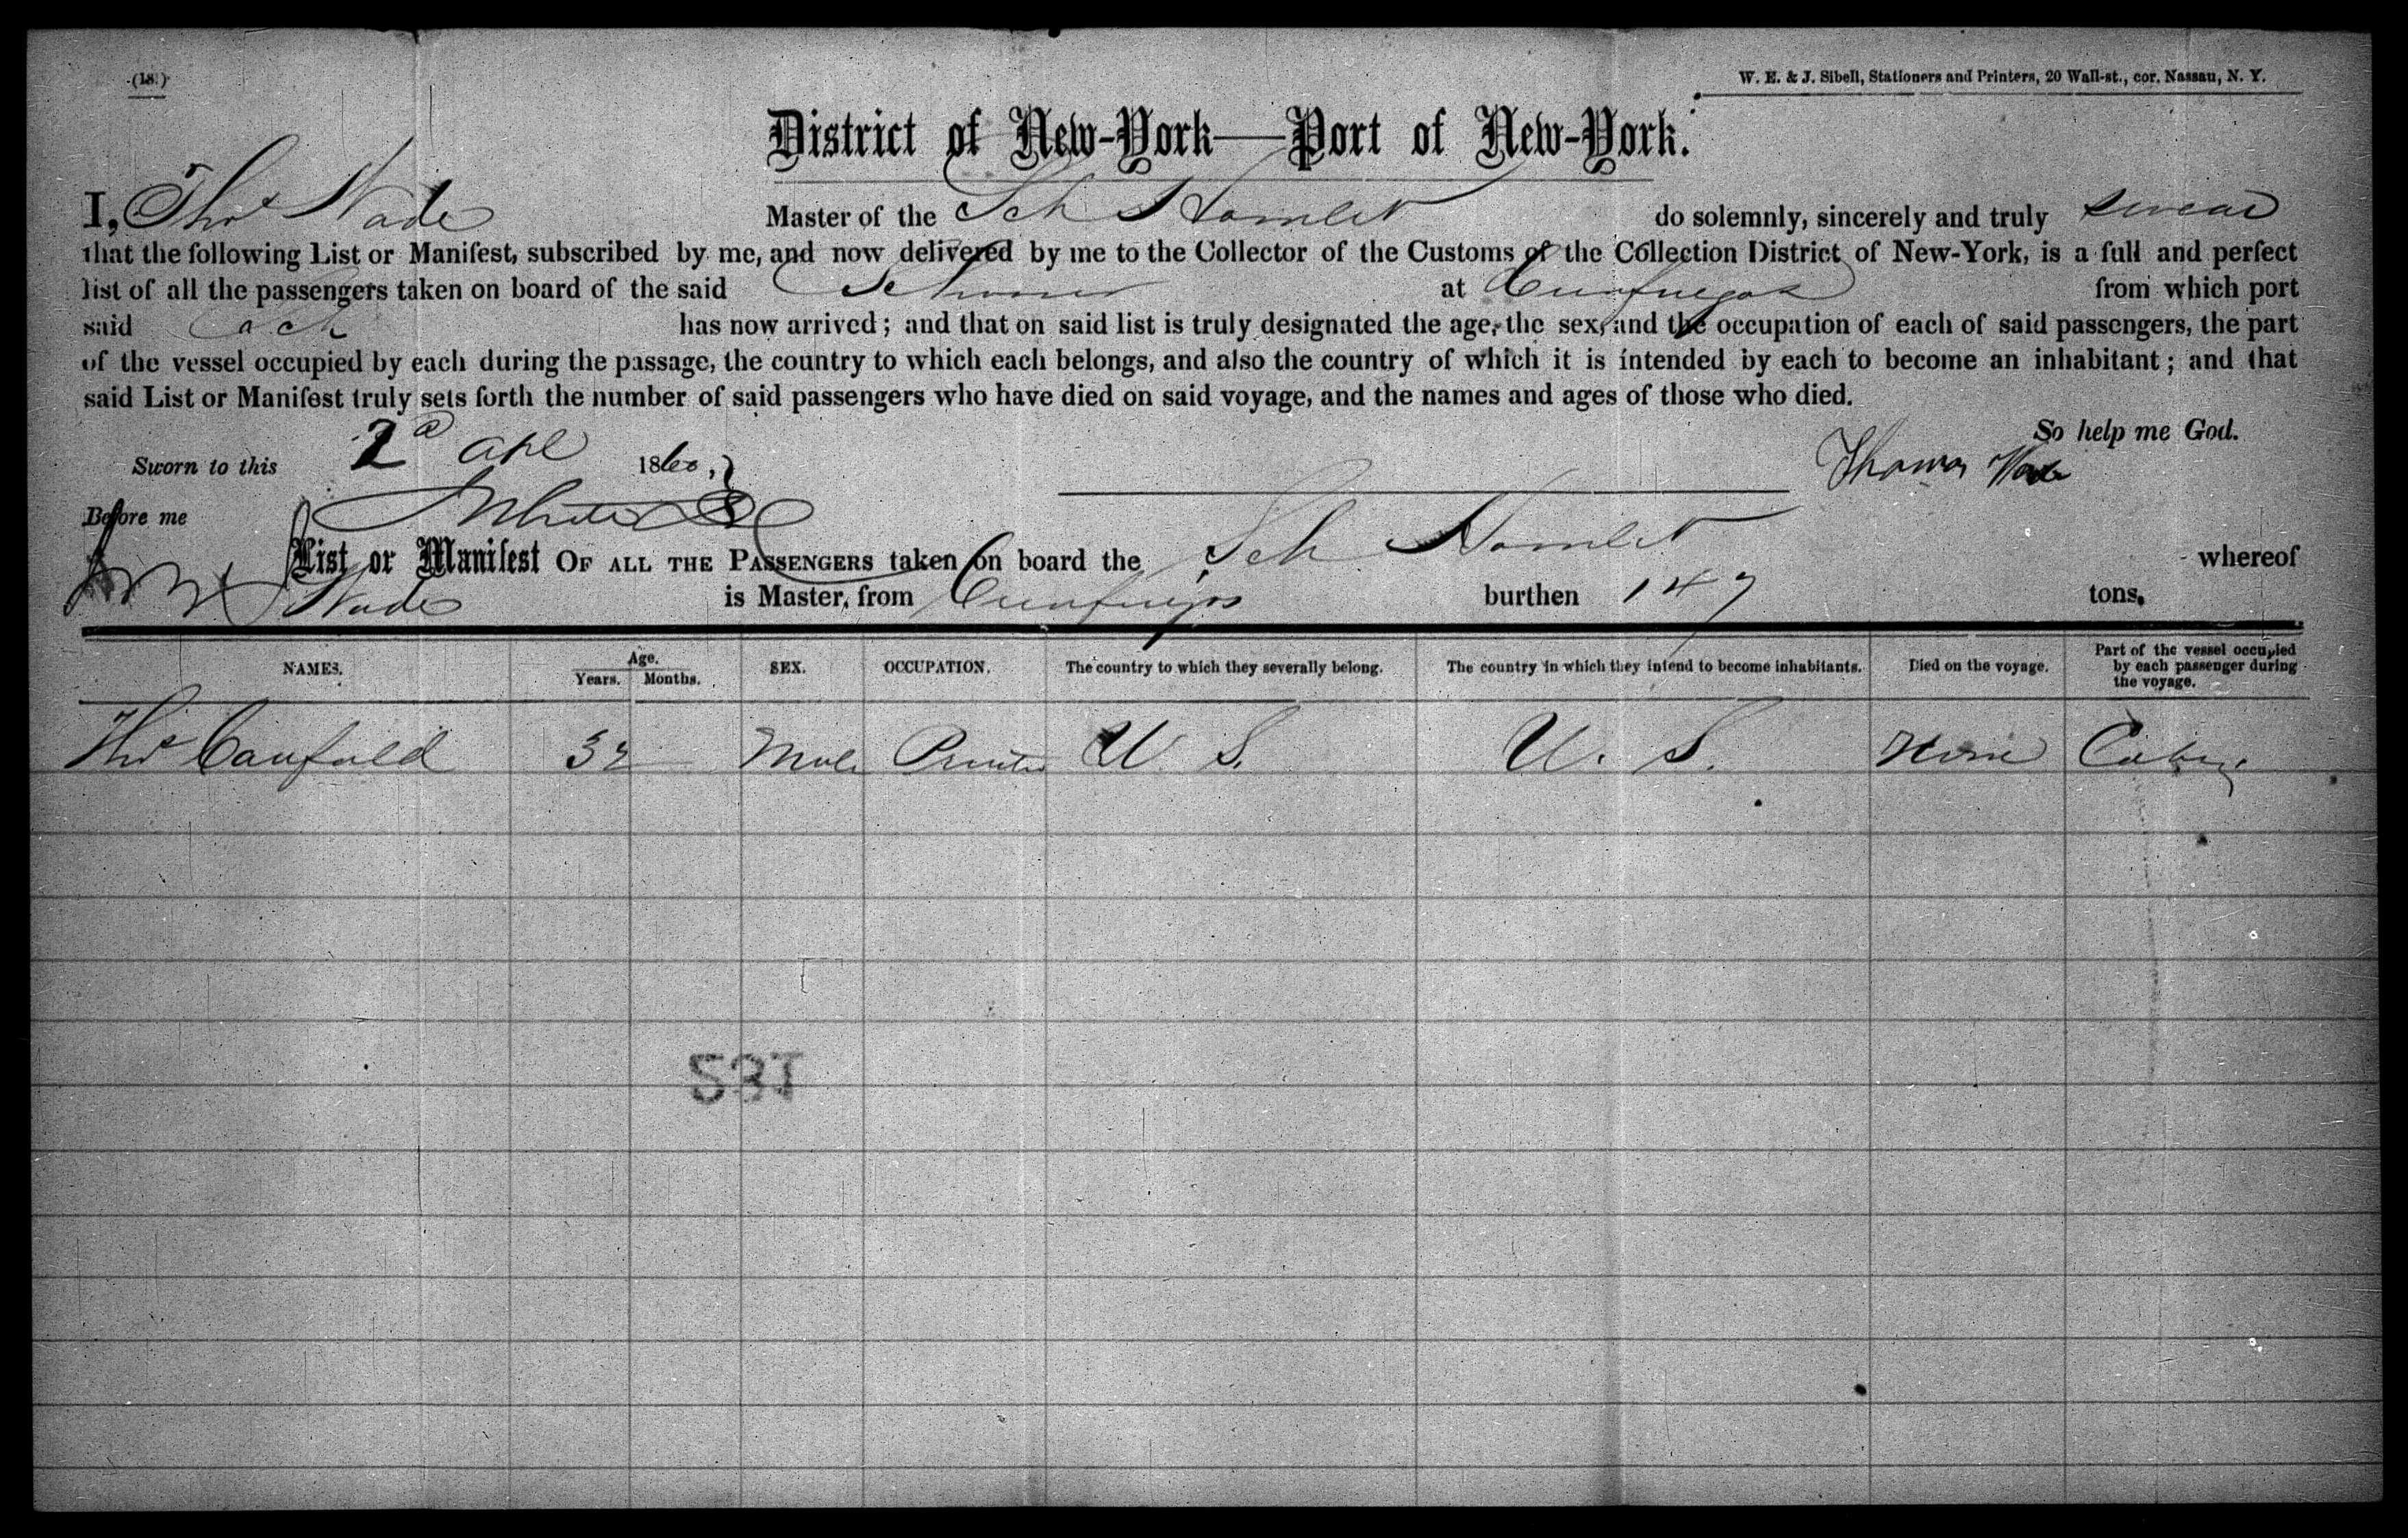 (18.)
W. E. & J. Sibell, Stationers and Printers, 20 Wall-st., cor. Nassau, N. Y.
District of New-York—Port of New-York.
I, Thos Wade Master of the Sch Hamlet do solemnly, sincerely and truly swear
that the following List or Manifest, subscribed by me, and now delivered by me to the Collector of the Customs of the Collection District of New-York, is a full and perfect
list of all the passengers taken on board of the said Schooner at Cienfuegos from which port
said Sch has now arrived; and that on said list is truly designated the age, the sex, and the occupation of each of said passengers, the part
of the vessel occupied by each during the passage, the country to which each belongs, and also the country of which it is intended by each to become an inhabitant; and that
said List or Manifest truly sets forth the number of said passengers who have died on said voyage, and the names and ages of those who died.
So help me God.
Sworn to this 2d Apl 1860, Thomas Wade
Before me
List or Manifest OF ALL THE PASSENGERS taken on board the Sch Hamlet whereof
Wade is Master, from Cienfuegos burthen 147 tons.
NAMES. Age. Years. Months. SEX. OCCUPATION. The country to which they severally belong. The country in which they intend to become inhabitants. Died on the voyage. Part of the vessel occupied by each passenger during the voyage.
Thos Canfield 32 Male Printer U. S. U. S. None Cabin